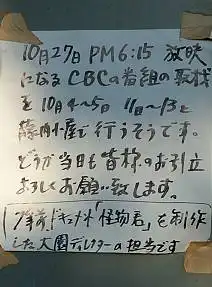 10月27日 PM6:15 放映
になる CBCの番組の取材
を10月4〜5日 11日〜13と
藤内小屋で行うそうです。
どうか当日も皆様のお引立
よろしくお願い致します。
7年前、ドキュメント「怪物君」を制作
した大園ディレクターの担当です